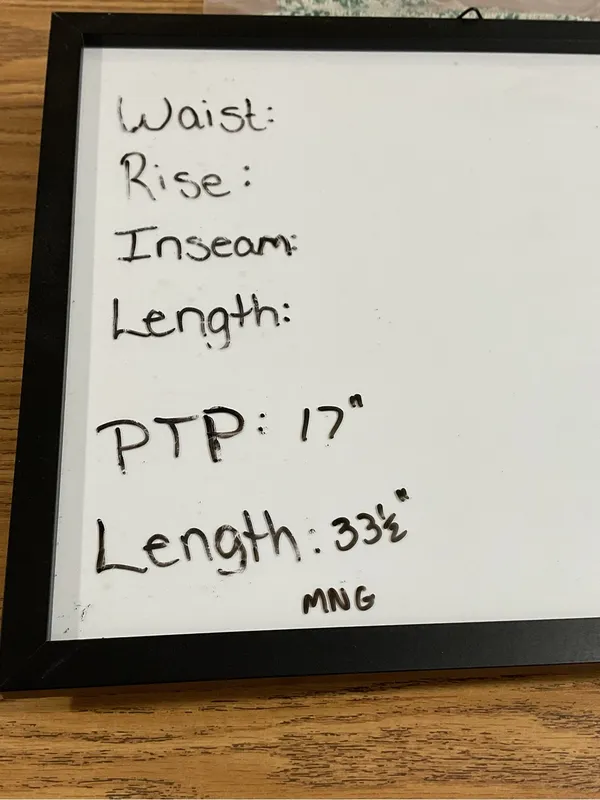 Waist:
Rise:
Inseam:
Length:
PTP: 17"
Length: 33½"
MNG